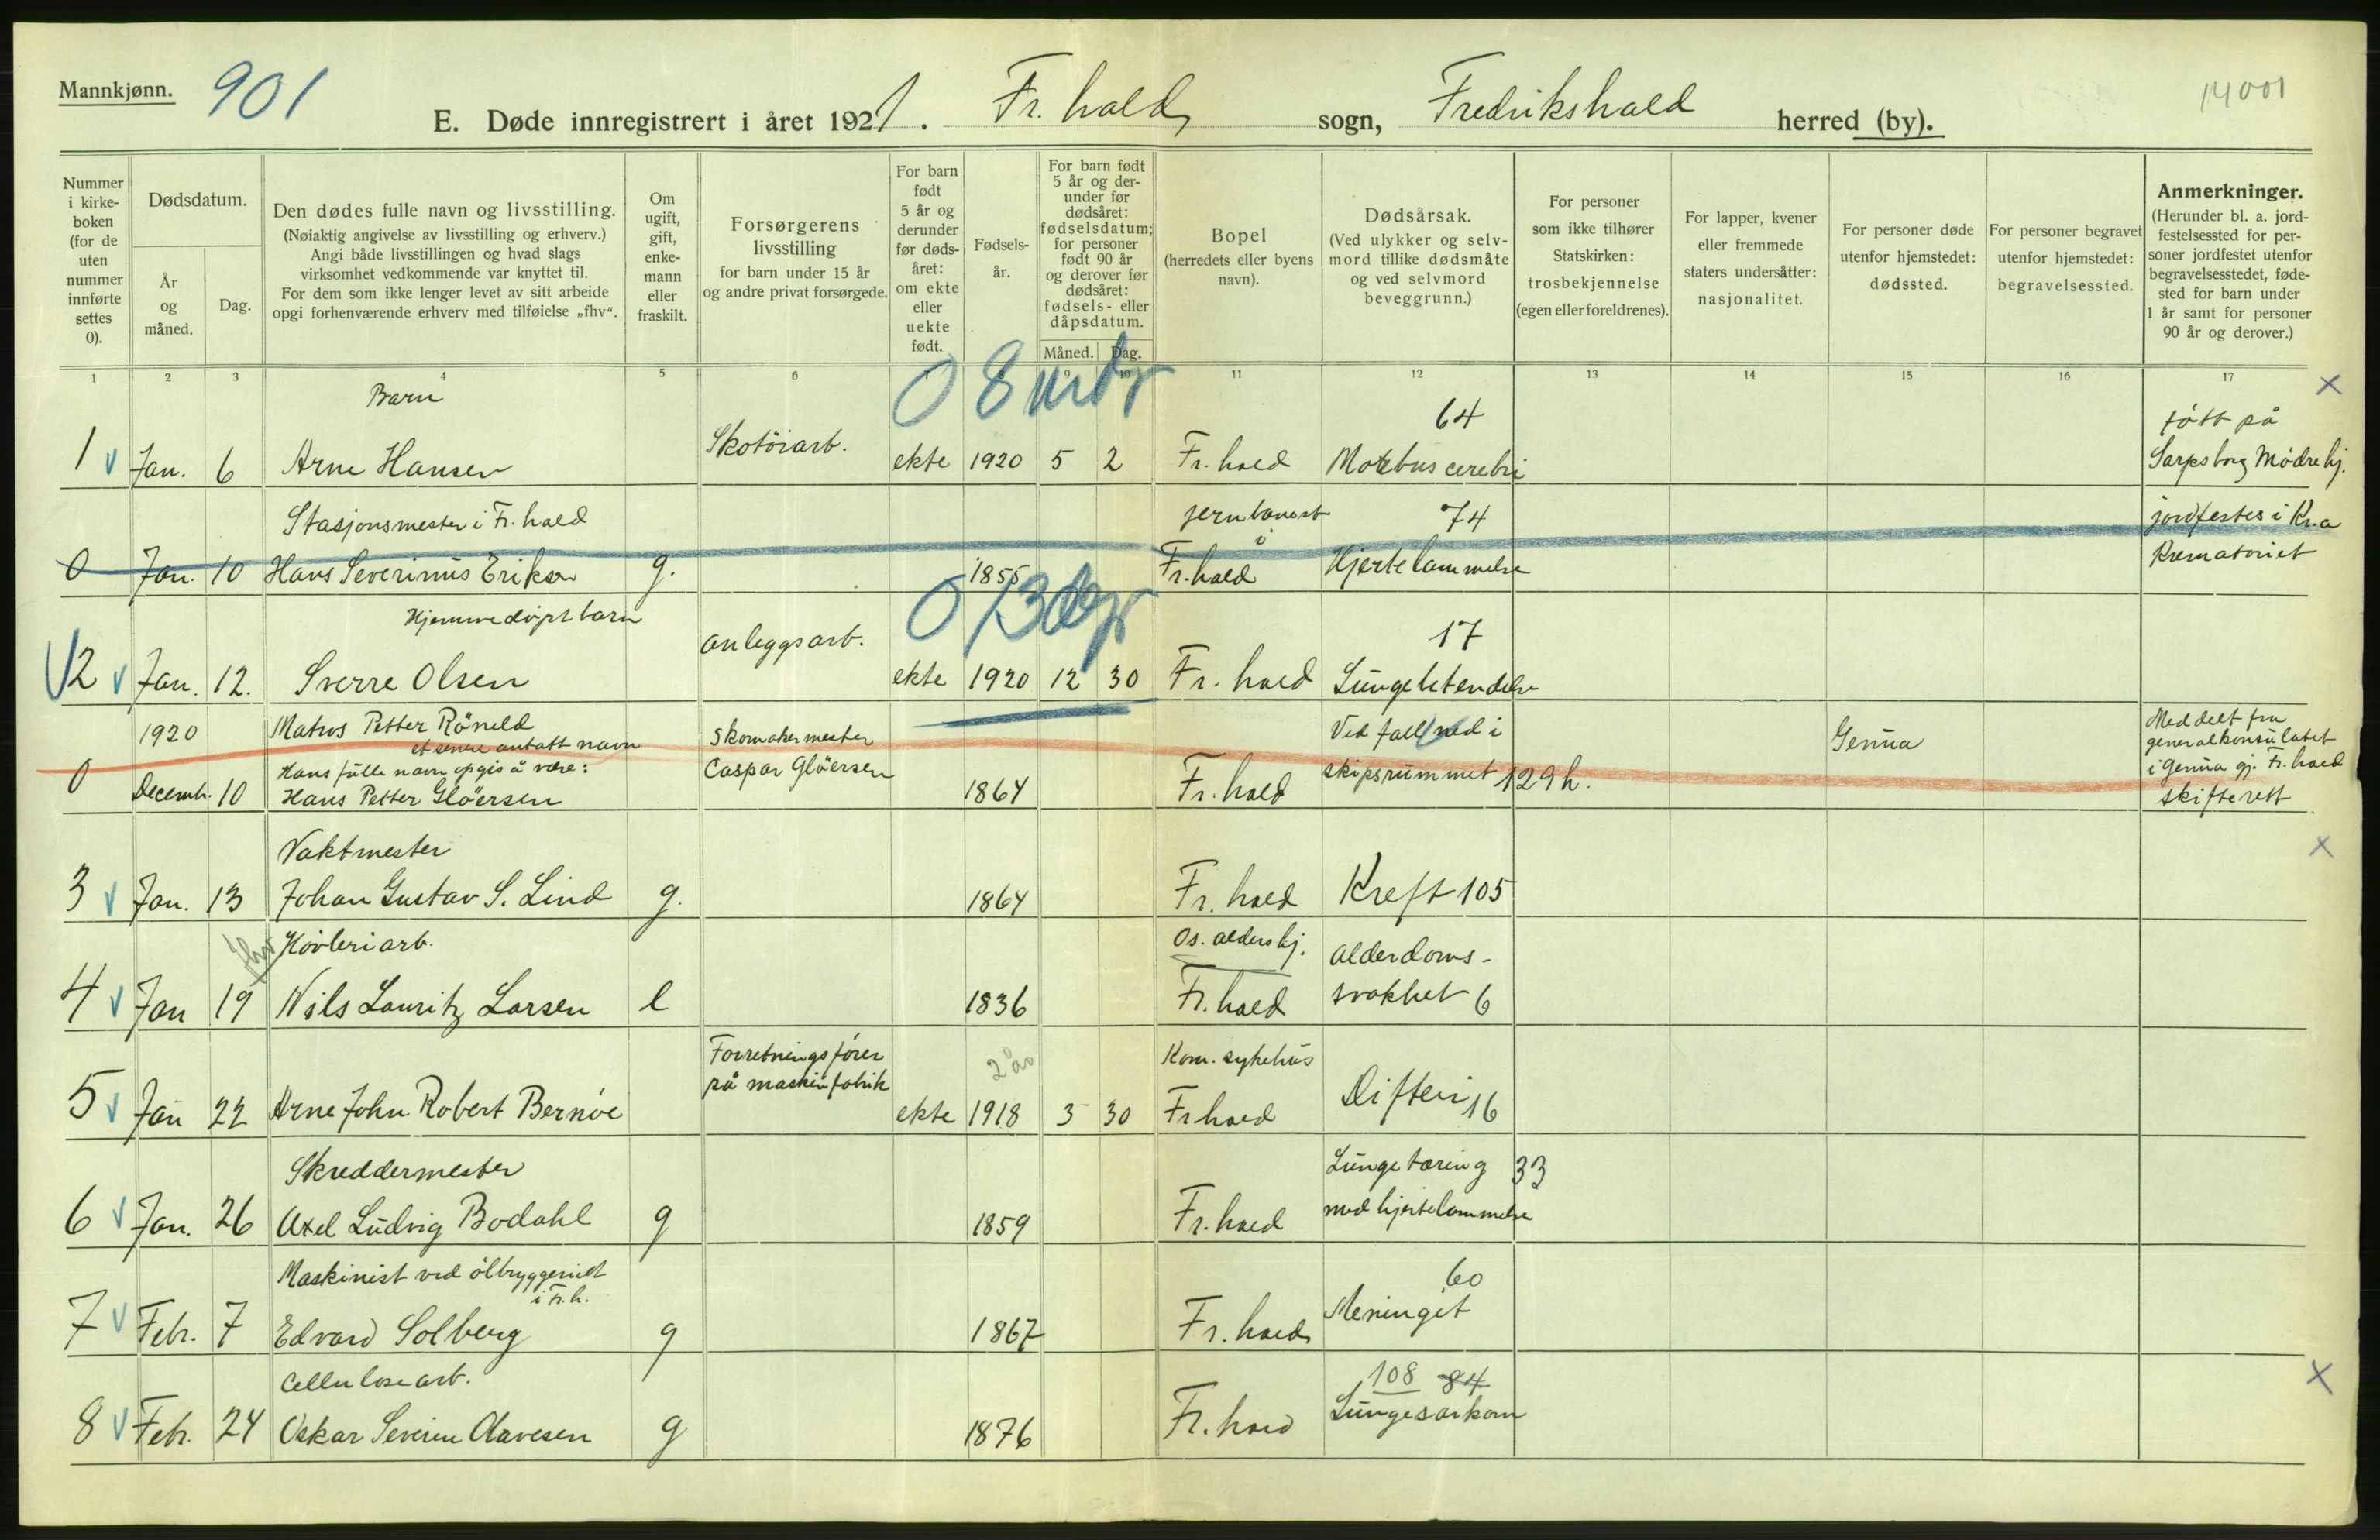 Mannkjønn.
901
14001
E. Døde innregistrert i året 1921. Fr. hald sogn, Fredrikshald herred (by).
Nummer i kirke-boken (for de uten nummer innførte settes 0).
Dødsdatum.
År og måned.
Dag.
Den dødes fulle navn og livsstilling.
(Nøiaktig angivelse av livsstilling og erhverv.)
Angi både livsstillingen og hvad slags
virksomhet vedkommende var knyttet til.
For dem som ikke lenger levet av sitt arbeide
opgi forhenværende erhverv med tilføielse „fhv“.
Om ugift, gift, enke-mann eller fraskilt.
Forsørgerens livsstilling
for barn under 15 år
og andre privat forsørgede.
For barn født 5 år og derunder før døds-året: om ekte eller uekte født.
Fødsels-år.
For barn født 5 år og der-under før dødsåret: fødselsdatum; for personer født 90 år og derover før dødsåret: fødsels- eller dåpsdatum.
Måned. Dag.
Bopel
(herredets eller byens navn).
Dødsårsak.
(Ved ulykker og selv-mord tillike dødsmåte og ved selvmord beveggrunn.)
For personer som ikke tilhører Statskirken: trosbekjennelse (egen eller foreldrenes).
For lapper, kvener eller fremmede staters undersåtter: nasjonalitet.
For personer døde utenfor hjemstedet: dødssted.
For personer begravet utenfor hjemstedet: begravelsessted.
Anmerkninger.
(Herunder bl. a. jord-festelsessted for per-soner jordfestet utenfor begravelsesstedet, føde-sted for barn under 1 år samt for personer 90 år og derover.)
1 2 3 4 5 6 9 10 11 12 13 14 15 16 17
Barn
0 8 mdr
64
født på
1 v Jan. 6 Arne Hansen Skotöiarb. ekte 1920 5 2 Fr. hald Morbus cerebri Sarpsborg Mödrehj.
Stasjonsmester i Fr. hald jernbanest 74 jordfestes i Kr.a
i
0 Jan. 10 Hans Severinus Eriksen g. 1855 Fr. hald Hjertelammelse Krematoriet
Hjemmedöpt barn
0 13 dgr
17
2 v Jan. 12. Sverre Olsen anleggsarb. ekte 1920 12 30 Fr. hald Lungebetendelse
1920 Matros Petter Röneld skomakermester Ved fall ned i Genua Meddelt fra
et senere antatt navn generalkonsulatet
Hans fulle navn opgis å være: Caspar Glöersen skipsrummet 129 h. i Genua gj. Fr. hald
0 Decemb. 10 Hans Petter Glöersen 1864 Fr. hald skifterett
Vaktmester
3 v Jan. 13 Johan Gustav S. Lind g. 1864 Fr. hald Kreft 105
fhv Hövleriarb. Os. aldershj. Alderdoms-
4 v Jan 19 Nils Lauritz Larsen e 1836 Fr. hald svakhet 6
Forretningsförer 2 år Kom. sykehus
på maskinfabrik
5 v Jan 22 Arne John Robert Bernöe ekte 1918 3 30 Fr hald Difteri 16
Skreddermester Lungetæring 33
6 v Jan. 26 Axel Ludvig Bodahl g 1859 Fr. hald med hjertelammelse
Maskinist ved ölbryggeriet 60
i Fr. h.
7 v Febr. 7 Edvard Solberg g 1867 Fr. hald Meningit
Cellulosearb. 108 84
8 v Febr. 24 Oskar Severin Olavesen g 1876 Fr. hald Lungesarkom